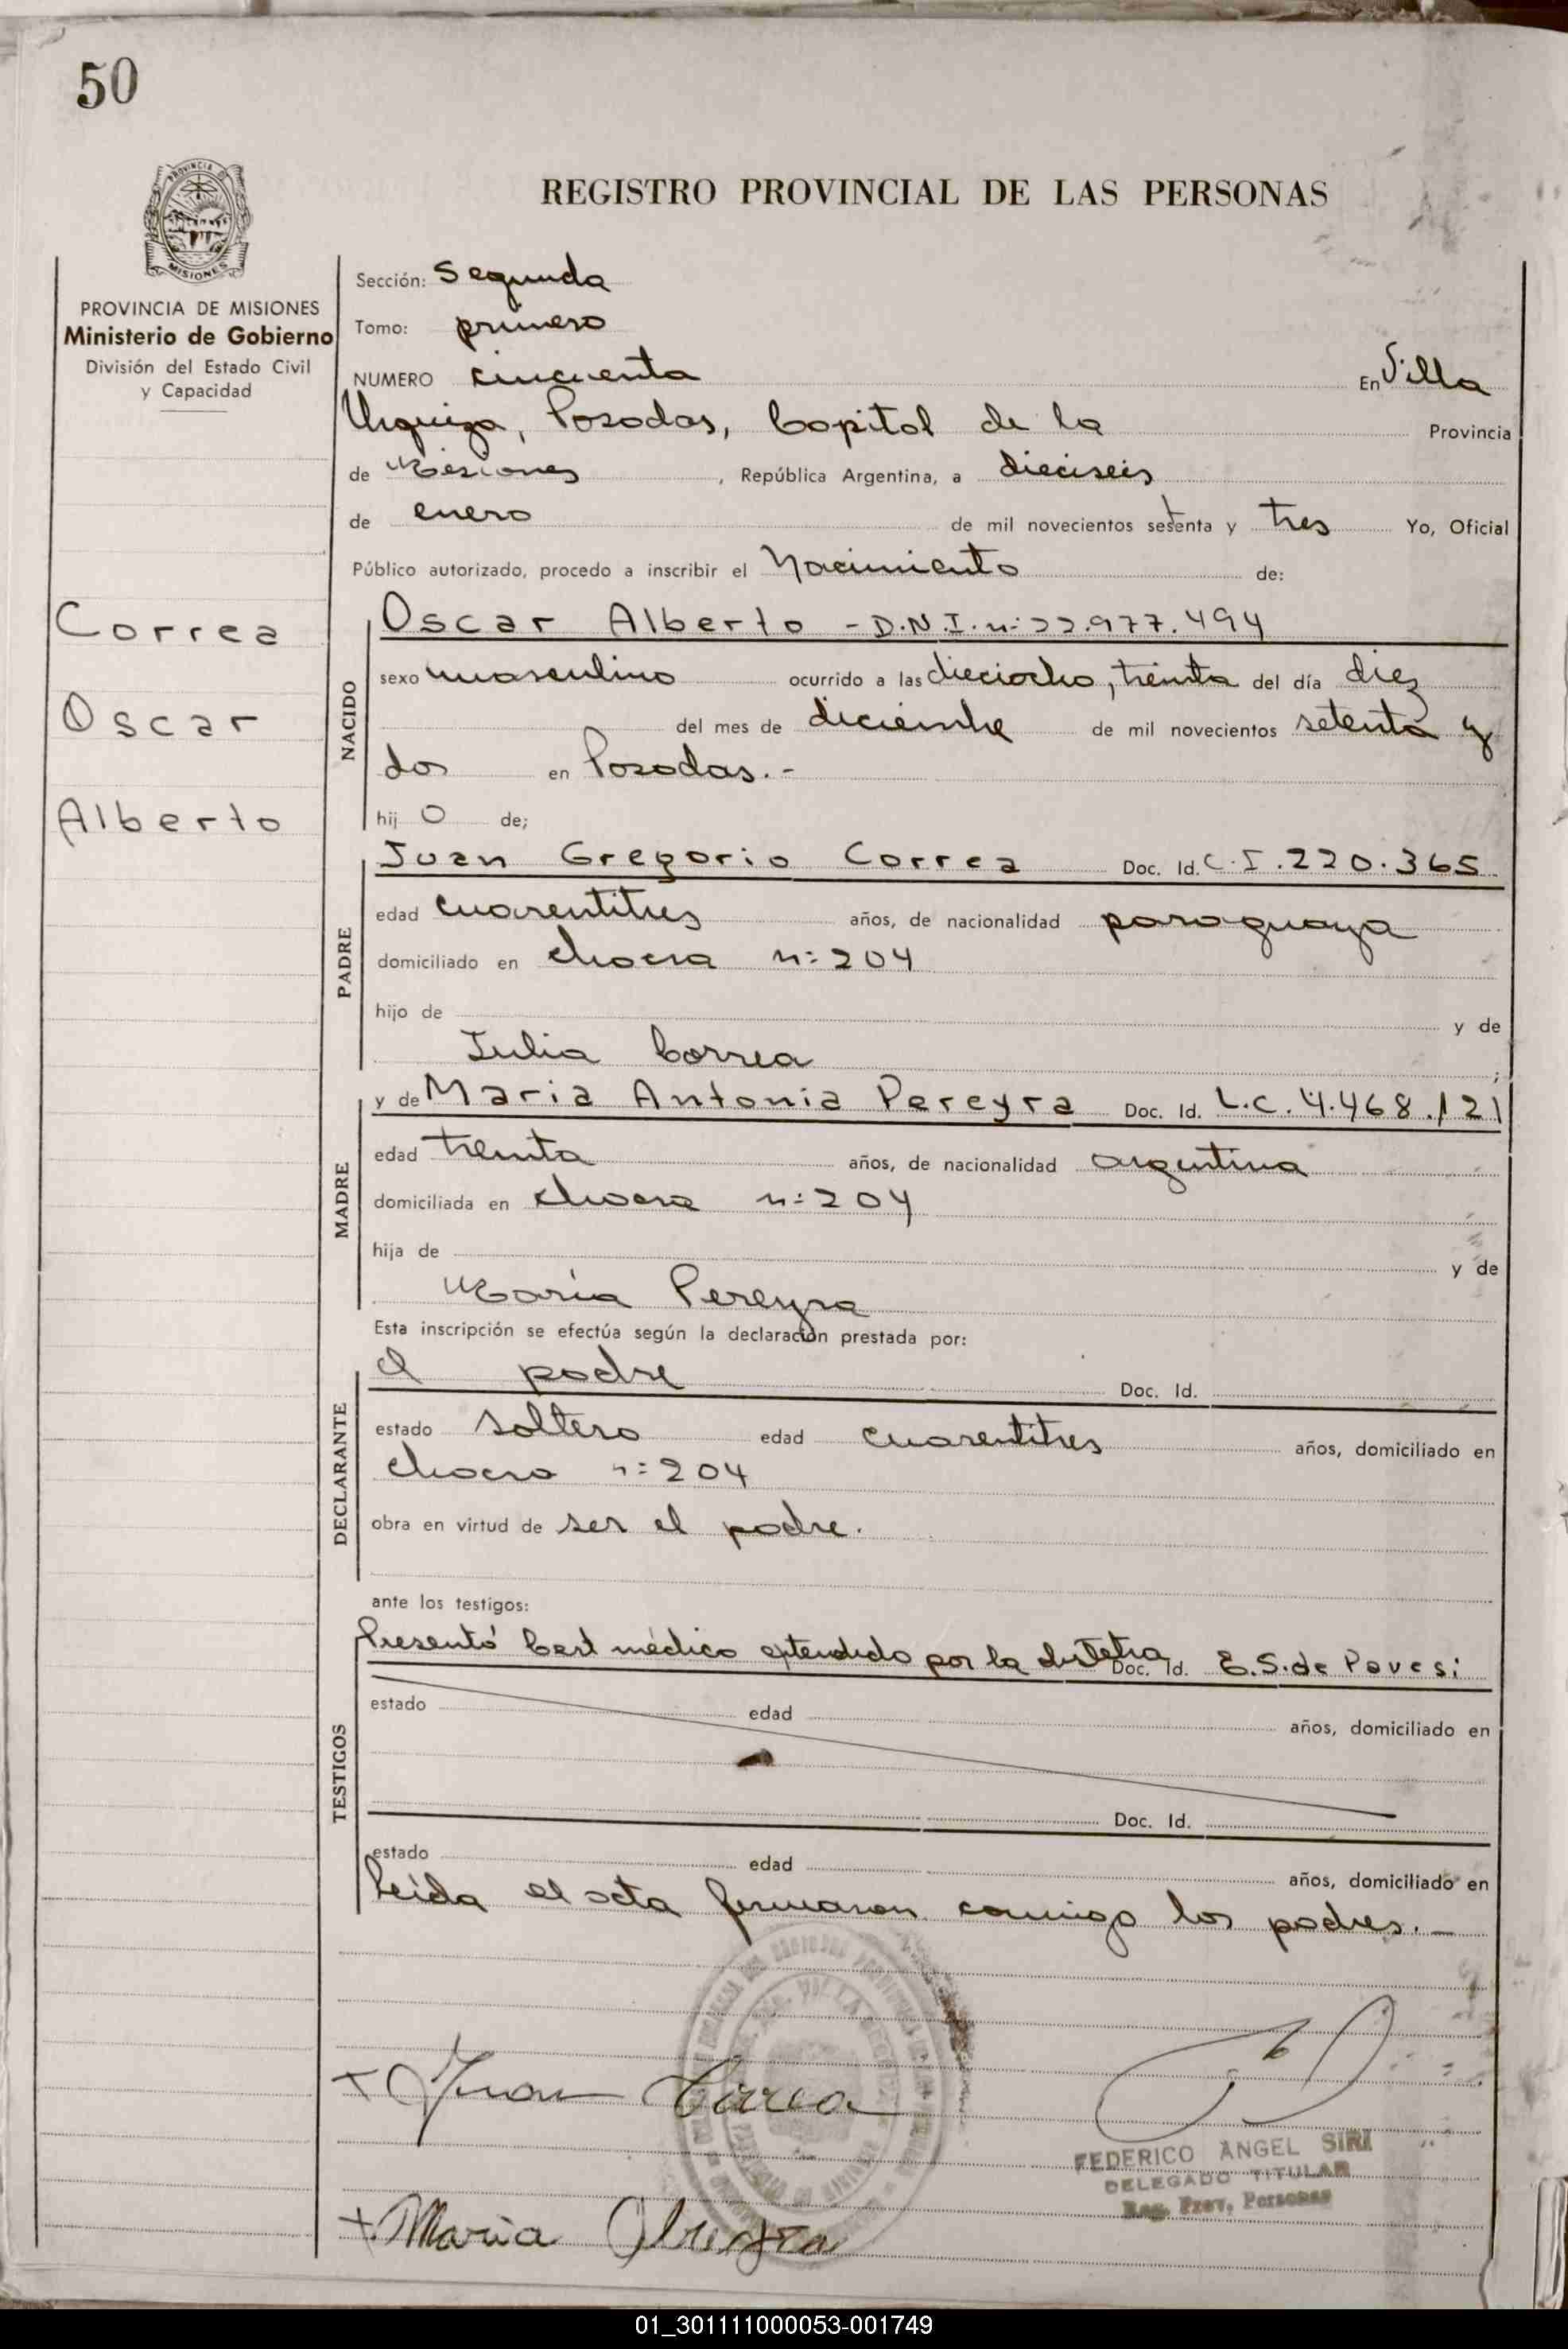 50
PROVINCIA DE
MISIONES
REGISTRO PROVINCIAL DE LAS PERSONAS
PROVINCIA DE MISIONES
Ministerio de Gobierno
División del Estado Civil
y Capacidad
Correa
Oscar
Alberto
Sección: Segunda
Tomo: primero
NUMERO cincuenta En Villa
Urquiza, Posadas, Capital de la Provincia
de Misiones, República Argentina, a dieciseis
de enero de mil novecientos setenta y tres Yo, Oficial
Público autorizado, procedo a inscribir el Nacimiento de:
NACIDO
Oscar Alberto - D.N.I. n: 22.977.494
sexo masculino ocurrido a las dieciocho, treinta del día diez
del mes de diciembre de mil novecientos setenta y
dos en Posadas.-
hij o de;
PADRE
Juan Gregorio Correa Doc. Id. C.I. 220.365
edad cuarentitres años, de nacionalidad paraguaya
domiciliado en chacra n: 204
hijo de y de
Julia Correa ;
MADRE
y de Maria Antonia Pereyra Doc. Id. L.C. 4.468.121
edad treinta años, de nacionalidad argentina
domiciliada en chacra n: 204
hija de y de
María Pereyra
Esta inscripción se efectúa según la declaración prestada por:
DECLARANTE
el padre Doc. Id.
estado soltero edad cuarentitres años, domiciliado en
chacra n: 204
obra en virtud de ser el padre.
ante los testigos:
TESTIGOS
Presentó Cert médico extendido por la Doc. Id. E.S. de Pavesi
estado edad años, domiciliado en
Doc. Id.
estado edad años, domiciliado en
Leída el acta firmaron conmigo los padres.-
Juan Correa
FEDERICO ANGEL SIRI
DELEGADO TITULAR
Reg. Prov. Personas
Maria
01_301111000053-001749